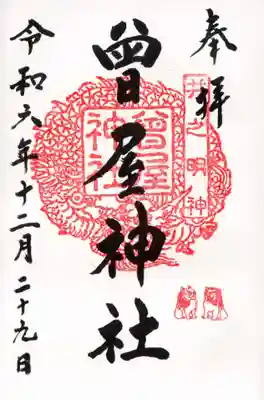 奉拝
井之明神
曽屋神社
曾屋神社
令和六年十二月二十九日